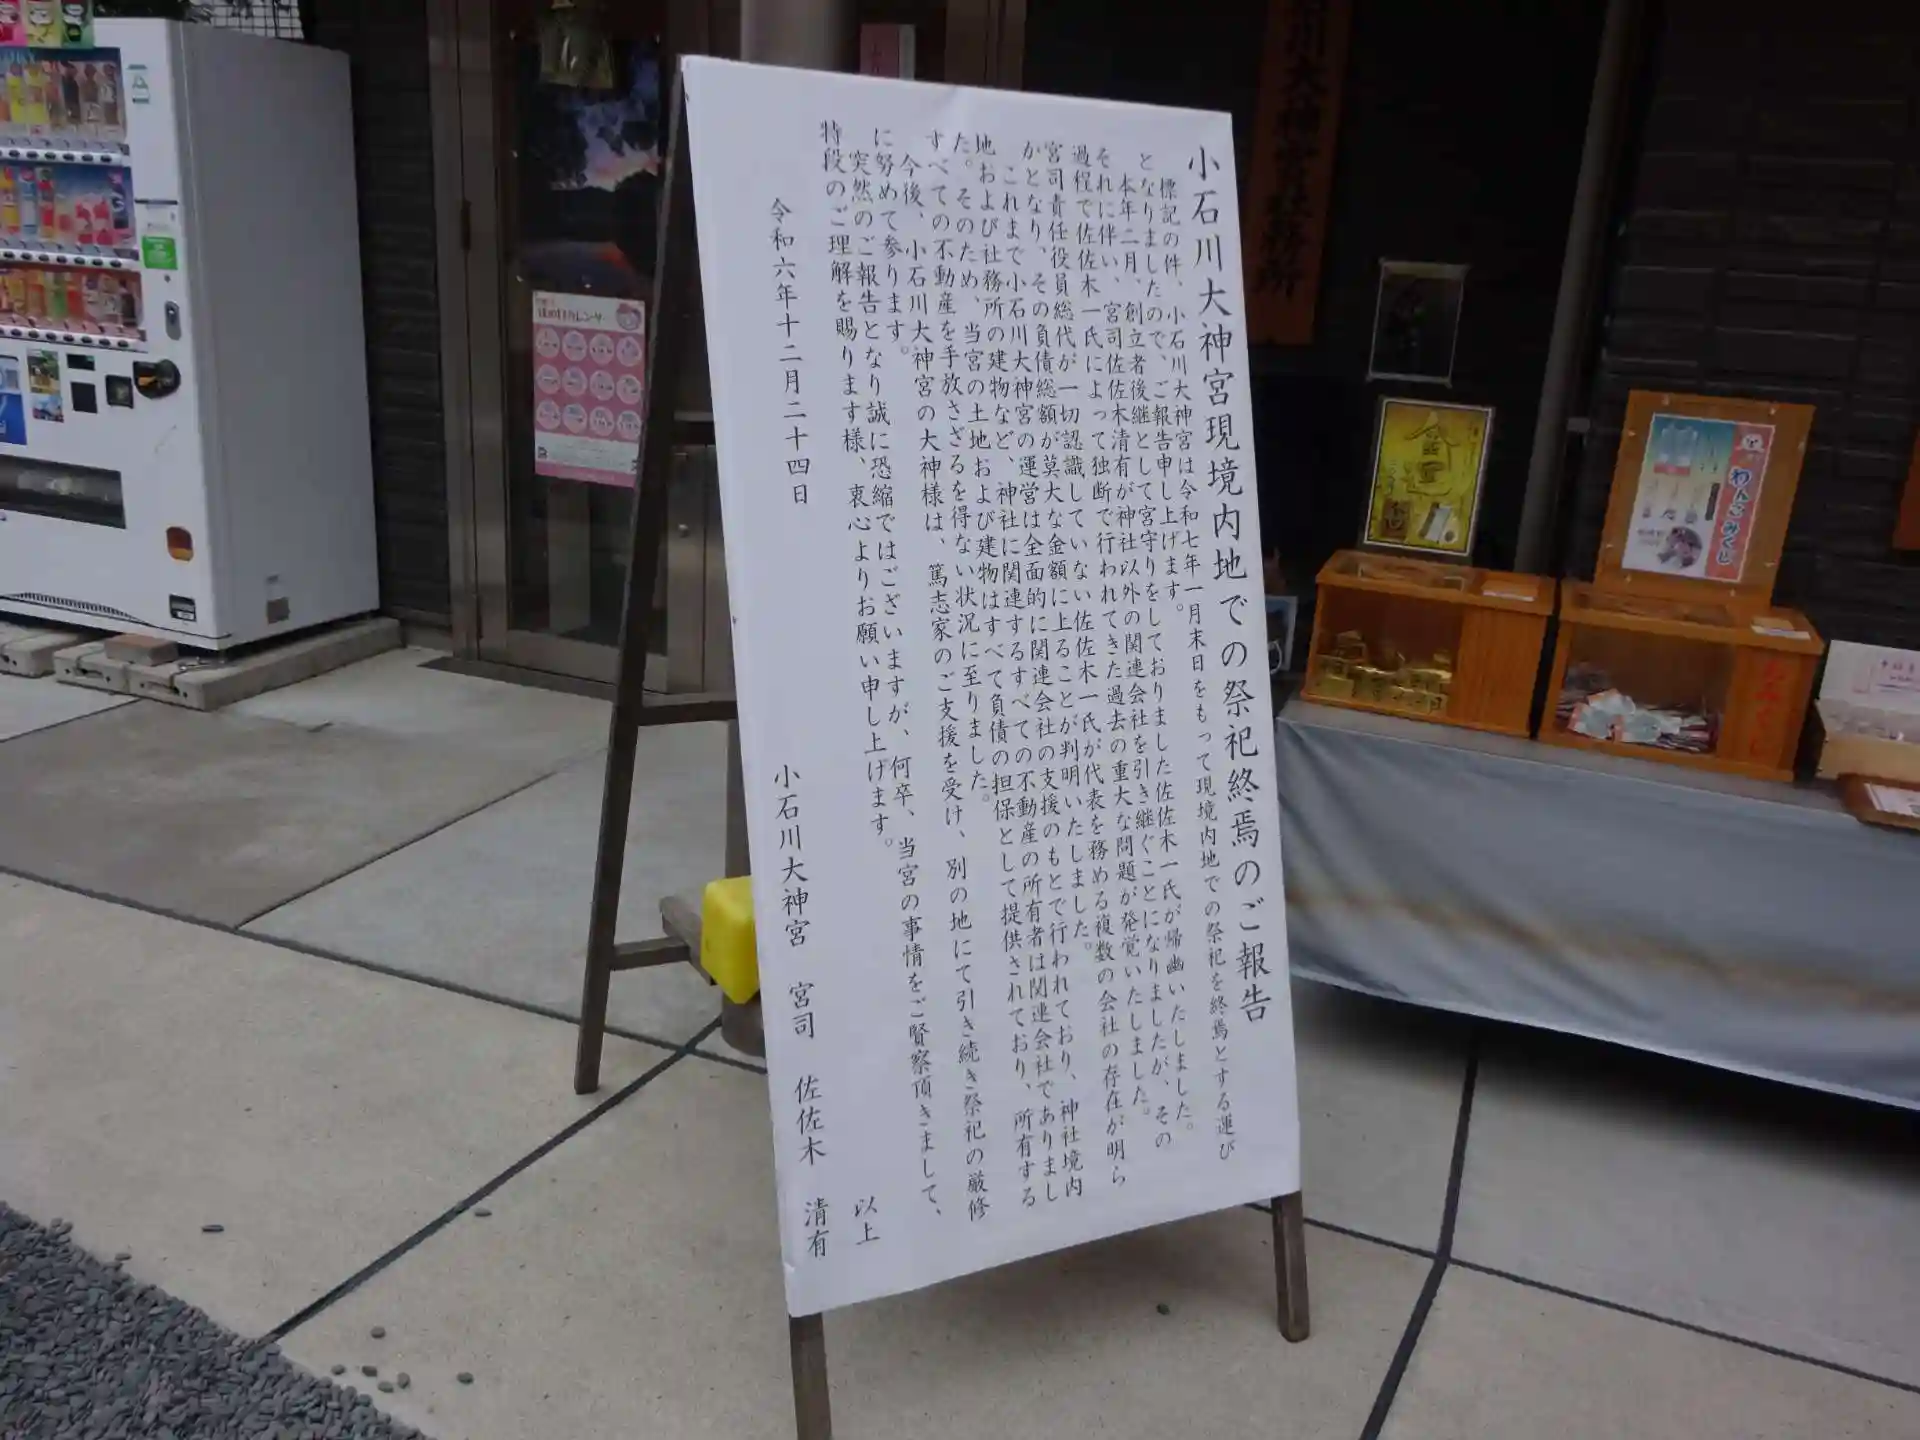 小石川大神宮現境内地での祭祀終焉のご報告
標記の件、小石川大神宮は令和七年一月末日をもって現境内地での祭祀を終焉とする運び
となりましたので、ご報告申し上げます。
本年二月、創立者後継として宮守りをしておりました佐佐木一氏が帰幽いたしました。
それに伴い、宮司佐佐木清有が神社以外の関連会社を引き継ぐことになりましたが、その
過程で佐佐木一氏によって独断で行われてきた過去の重大な問題が発覚いたしました。
宮司責任役員総代が一切認識していない佐佐木一氏が代表を務める複数の会社の存在が明ら
かとなり、その負債総額が莫大な金額に上ることが判明いたしました。
これまで小石川大神宮の運営は全面的に関連会社の支援のもとで行われており、神社境内
地および社務所の建物など、神社に関連するすべての不動産の所有者は関連会社でありまし
た。そのため、当宮の土地および建物はすべて負債の担保として提供されており、所有する
すべての不動産を手放さざるを得ない状況に至りました。
今後、小石川大神宮の大神様は、篤志家のご支援を受け、別の地にて引き続き祭祀の厳修
に努めて参ります。
突然のご報告となり誠に恐縮ではございますが、何卒、当宮の事情をご賢察頂きまして、
特段のご理解を賜ります様、衷心よりお願い申し上げます。
以上
令和六年十二月二十四日
小石川大神宮 宮司 佐佐木 清有
川大神宮社務所
金運
わんこみくじ
おみくじ